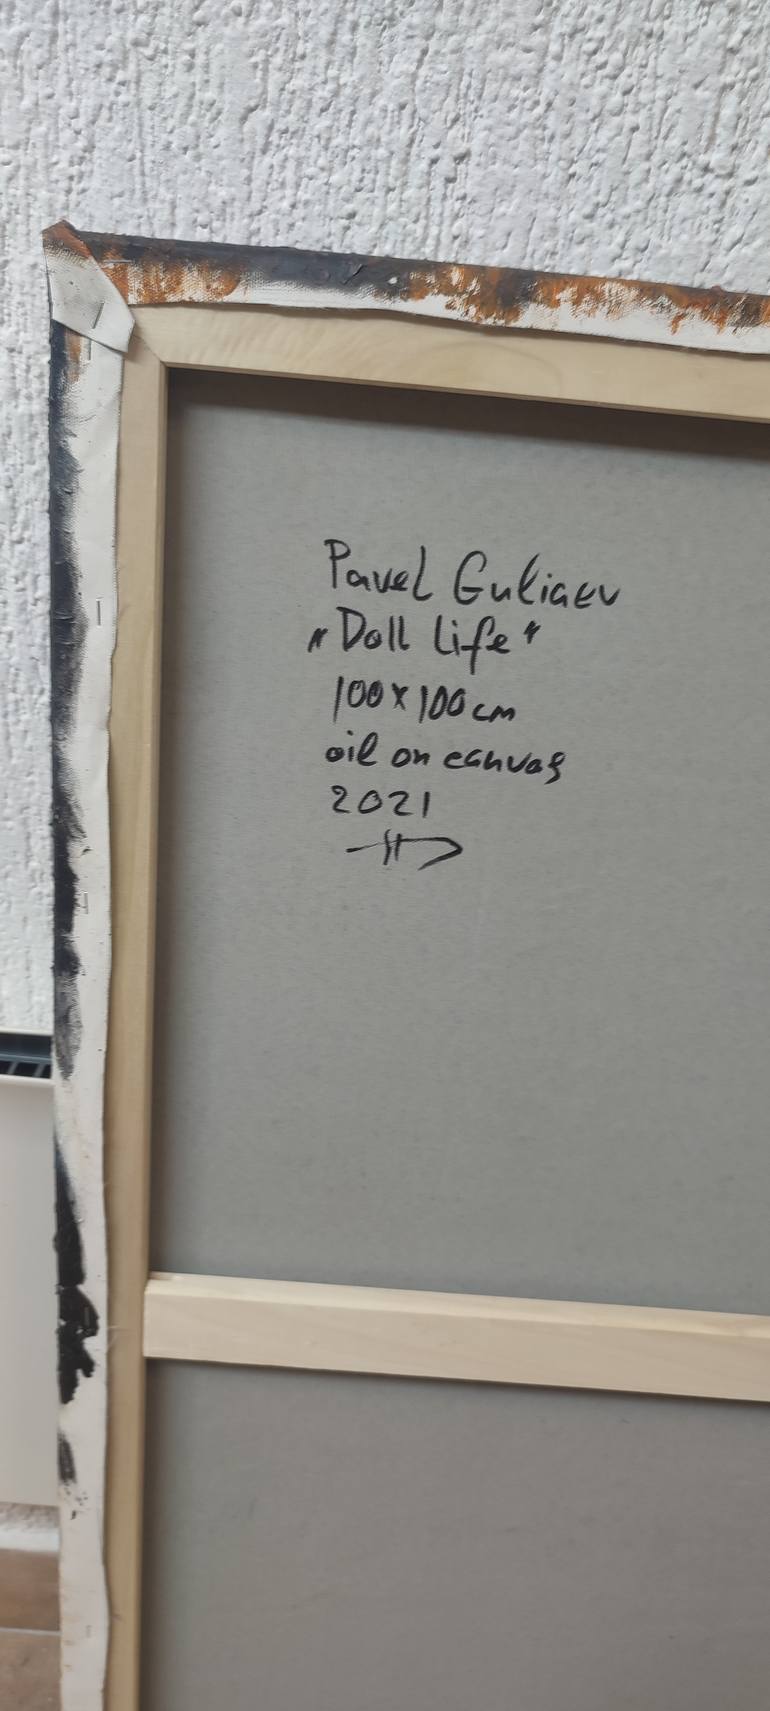 Pavel Guliaev
"Doll Life"
100x100cm
oil on canvas
2021